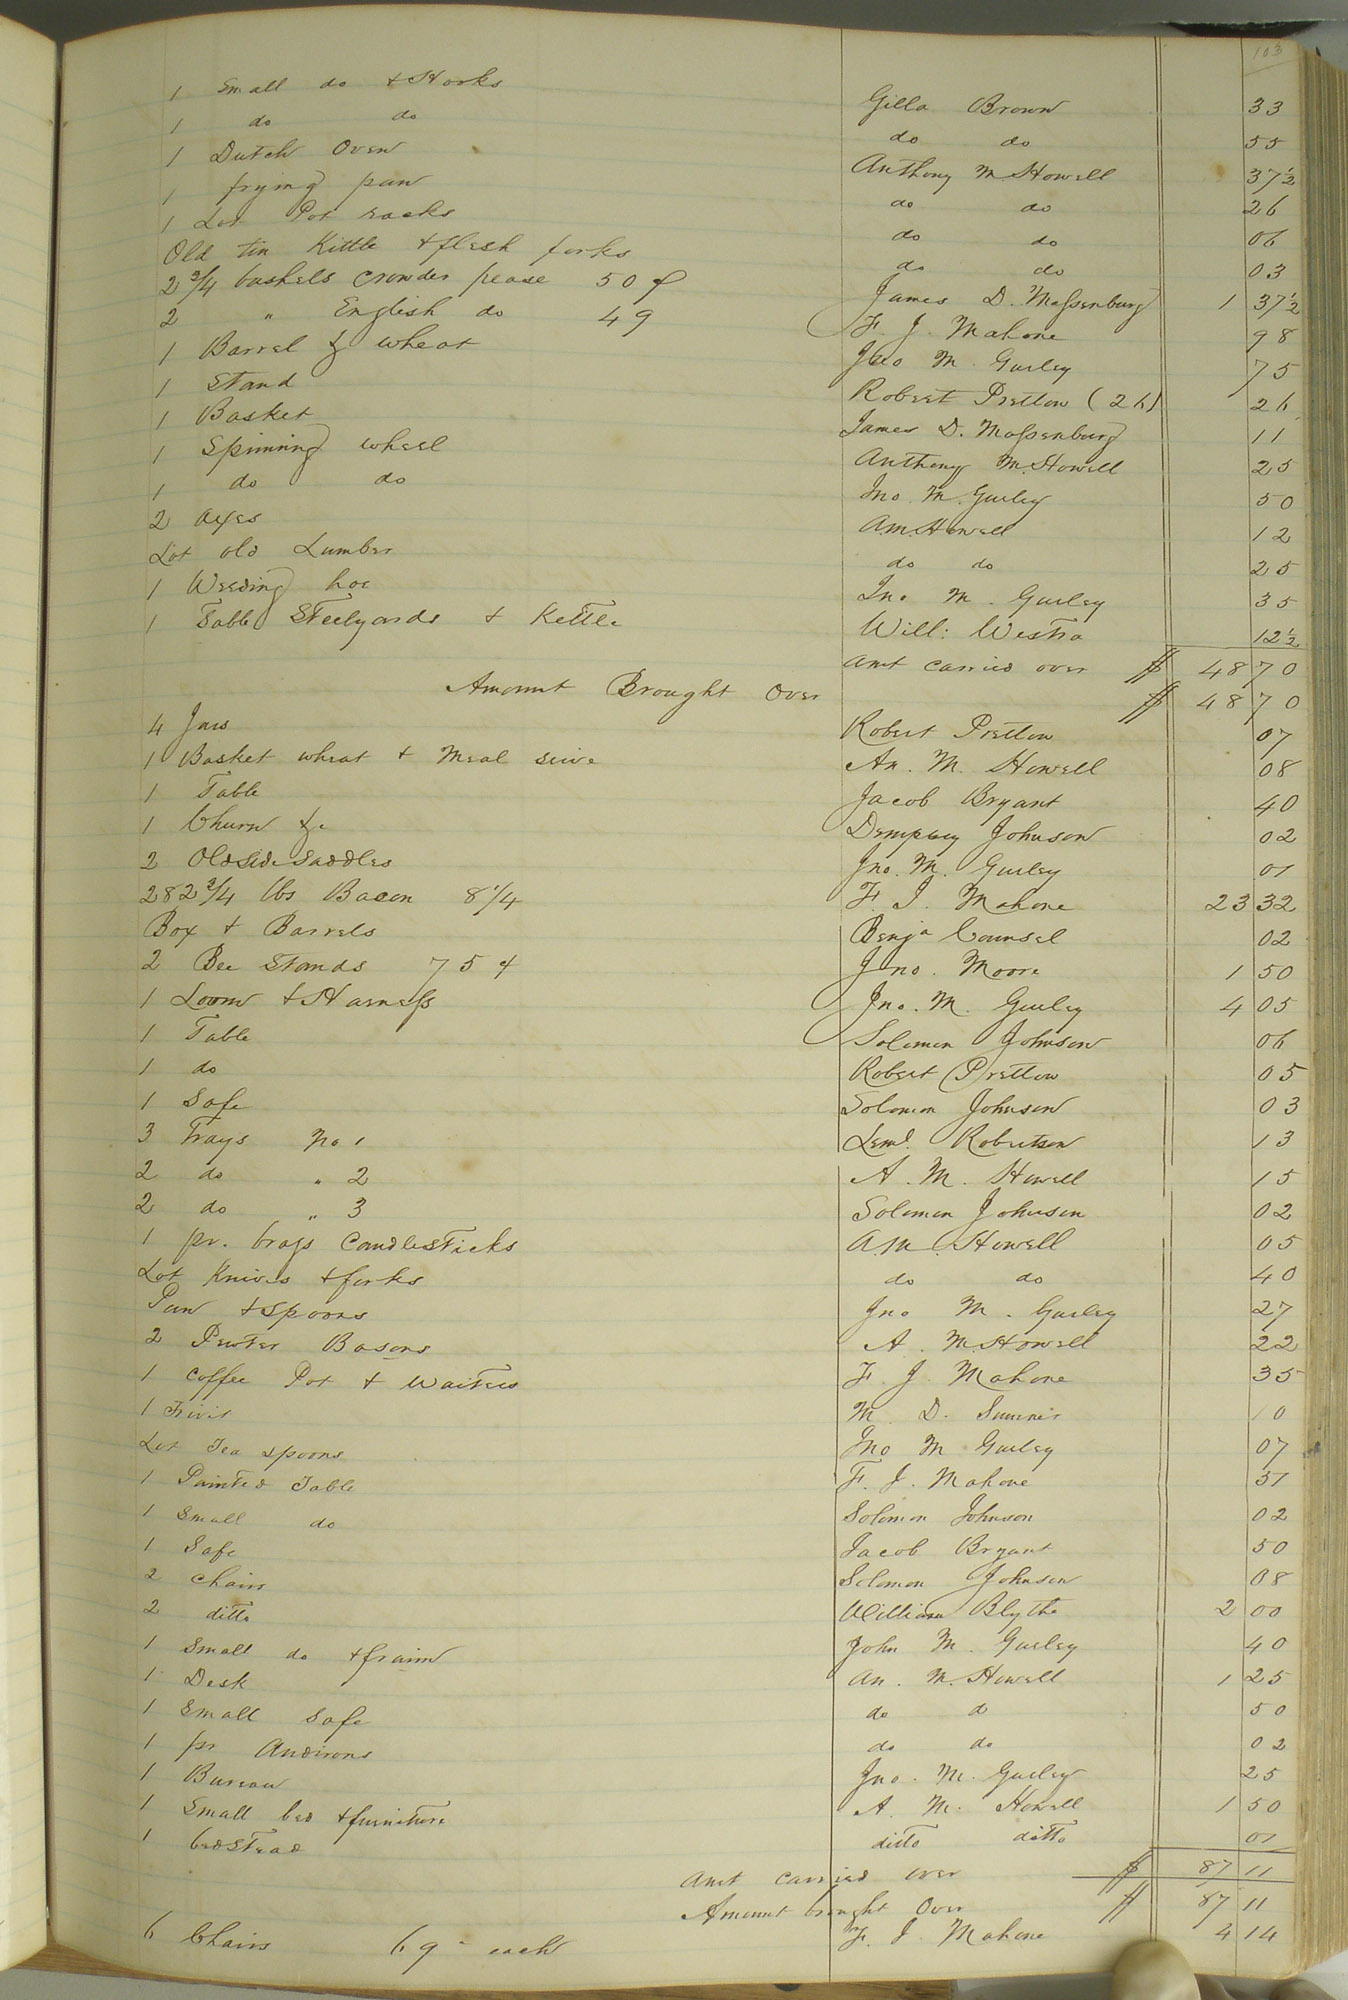 103
1 Small do & Hooks Gilla Brown 33
1 do do do do 55
1 Dutch Oven Anthony M Howell 37½
1 frying pan do do 26
1 Lot Pot racks do do 06
Old tin Kittle & flesh forks do do 03
2 3/4 bushels crowder pease 50 ¢ James D. Massenburg 1 37½
2 " English do 49 F. J. Mahone 98
1 Barrel & wheat Jno M. Gurley 75
1 Stand Robert Pretlow (26) 26
1 Basket James D. Massenburg 11
1 Spinning wheel Anthony M. Howell 25
1 do do Jno. M. Gurley 50
2 axes A.M. Howell 12
Lot old Lumber do do 25
1 Weeding hoe Jno M. Gurley 35
1 Table Steelyards & Kettle Will: Westra 12½
Amt carried over $ 48 70
Amount Brought Over $ 48 70
4 Jars Robert Pretlow 07
1 Basket wheat & Meal seive An. M. Howell 08
1 Table Jacob Bryant 40
1 Churn &c Dempsey Johnson 02
2 Old Side Saddles Jno. M. Gurley 01
282 3/4 lbs Bacon 8 1/4 F. J. Mahone 23 32
Box & Barrels Benja Counsel 02
2 Bee Stands 75 ¢ Jno. Moore 1 50
1 Loom & Harness Jno. M. Gurley 4 05
1 Table Solomon Johnson 06
1 do Robert Pretlow 05
1 Safe Solomon Johnson 03
3 Trays No 1 Leml. Robertson 13
2 do " 2 A. M. Howell 15
2 do " 3 Solomon Johnson 02
1 pr. brass Candlesticks A.M Howell 05
Lot Knives & forks do do 40
Pan & Spoons Jno M. Gurley 27
2 Pewter Basons A. M. Howell 22
1 Coffee Pot & Waiters F. J. Mahone 35
1 Trivit M. D. Sumner 10
Lot Tea spoons Jno M Gurley 07
1 Painted Table F. J. Mahone 51
1 Small do Solomon Johnson 02
1 Safe Jacob Bryant 50
2 chairs Solomon Johnson 08
2 ditto William Blythe 2 00
1 Small do & fraim John M. Gurley 40
1 Desk An. M. Howell 1 25
1 Small Safe do d 50
1 pr Andirons do do 02
1 Bureau Jno. M. Gurley 25
1 Small bed & furniture A. M. Howell 1 50
1 bedstead ditto ditto 01
Amt carried over $ 87 11
Amount brought Over $ 87 11
6 Chairs 69 each F. J. Mahone 4 14